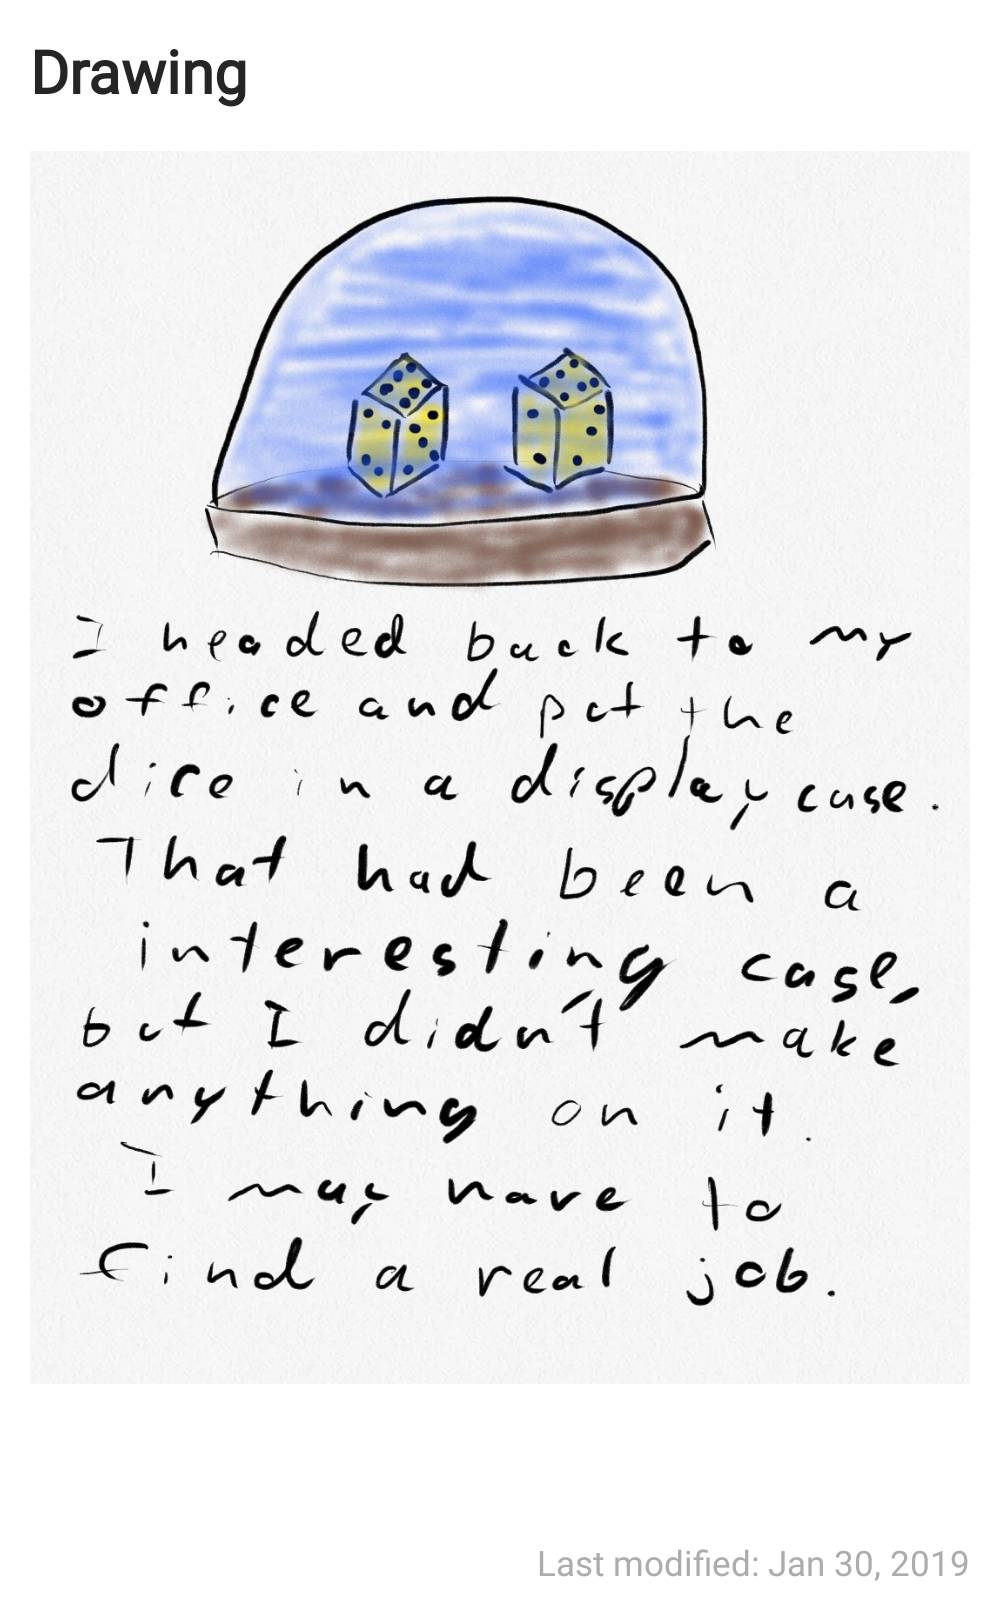 Drawing
I headed back to my
office and put the
dice in a display case.
That had been a
interesting case,
but I didn't make
anything on it.
I may have to
find a real job.
Last modified: Jan 30, 2019